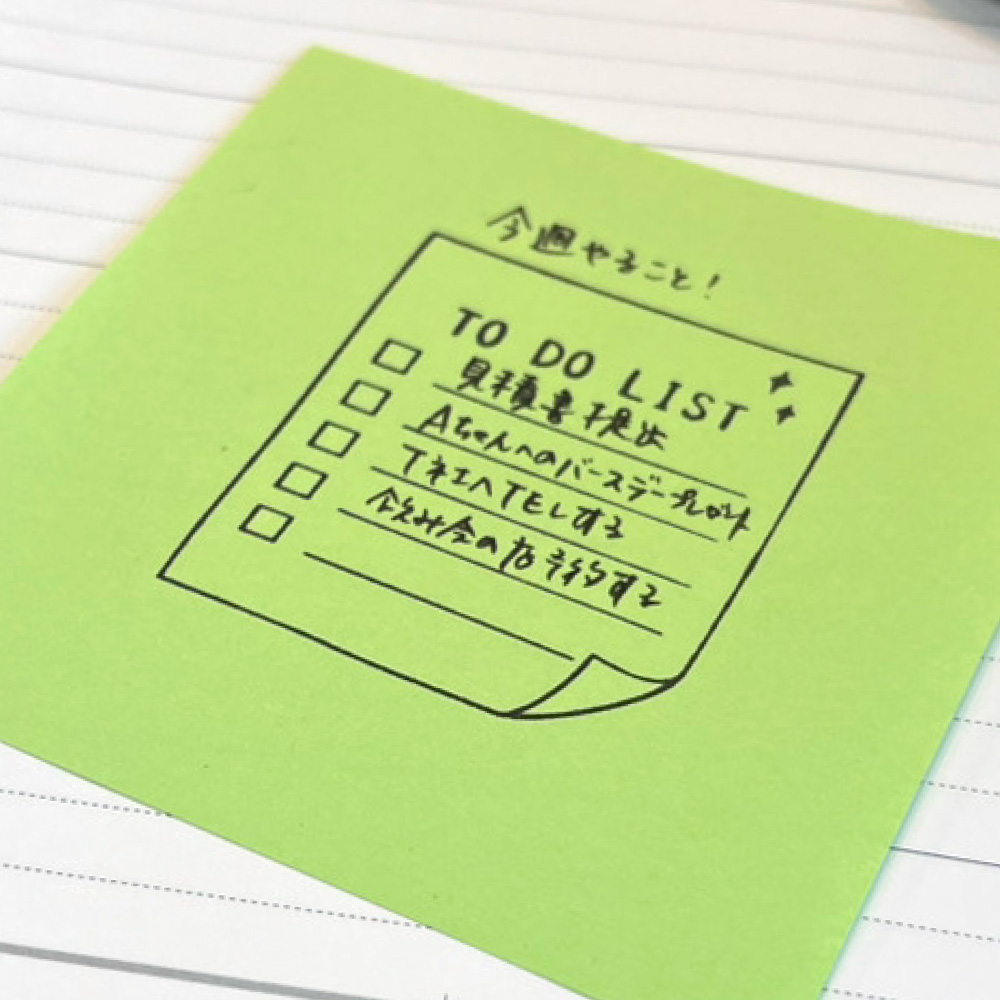 今週やること!
TO DO LIST
見積書提出
Aちゃんへのバースデープレゼント
T社へTELする
飲み会の店予約する